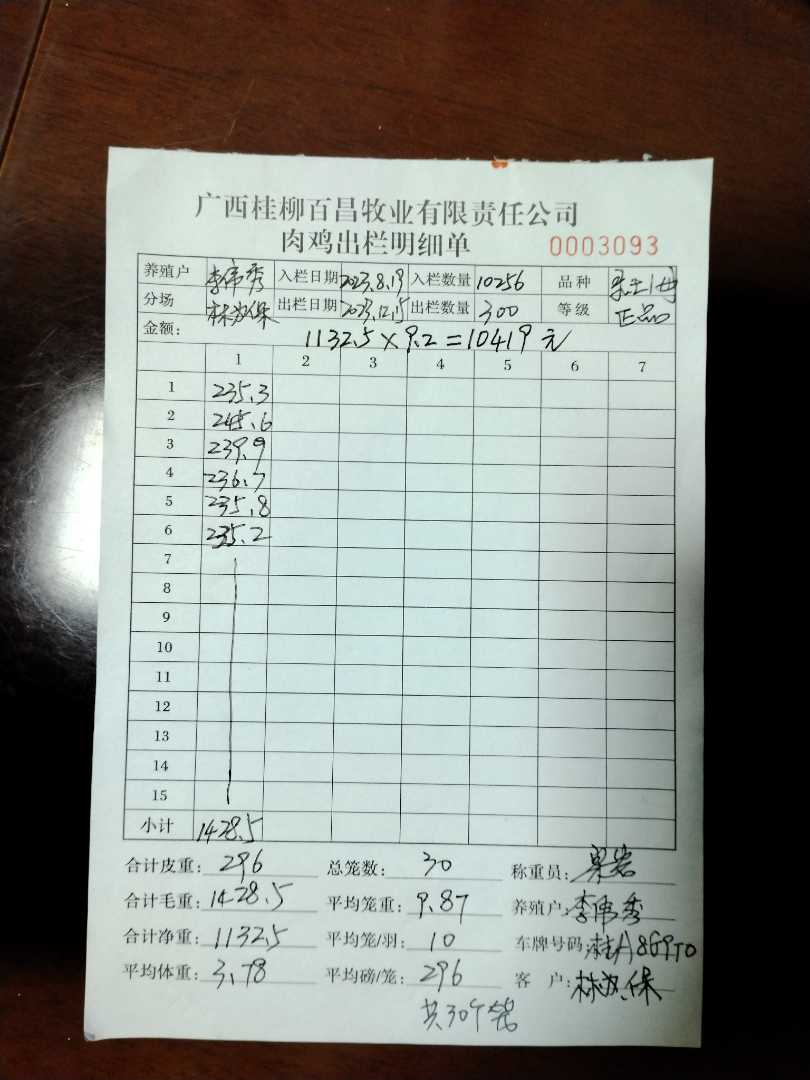 广西桂柳百昌牧业有限责任公司
肉鸡出栏明细单 0003093
养殖户 李伟秀 入栏日期 2023.8.19 入栏数量 10256 品种
分场 出栏日期 2023.12.15 出栏数量 300 等级 正品
金额: 1132.5×9.2=10419元
1 2 3 4 5 6 7
1 235.3
2 245.6
3 239.9
4 236.7
5 235.8
6 235.2
7
8
9
10
11
12
13
14
15
小计 1428.5
合计皮重: 296 总笼数: 30 称重员:
合计毛重: 1428.5 平均笼重: 9.87 养殖户: 李伟秀
合计净重: 1132.5 平均笼/羽: 10 车牌号码: 桂A8G9T0
平均体重: 3.78 平均磅/笼: 296 客户:
共30个笼